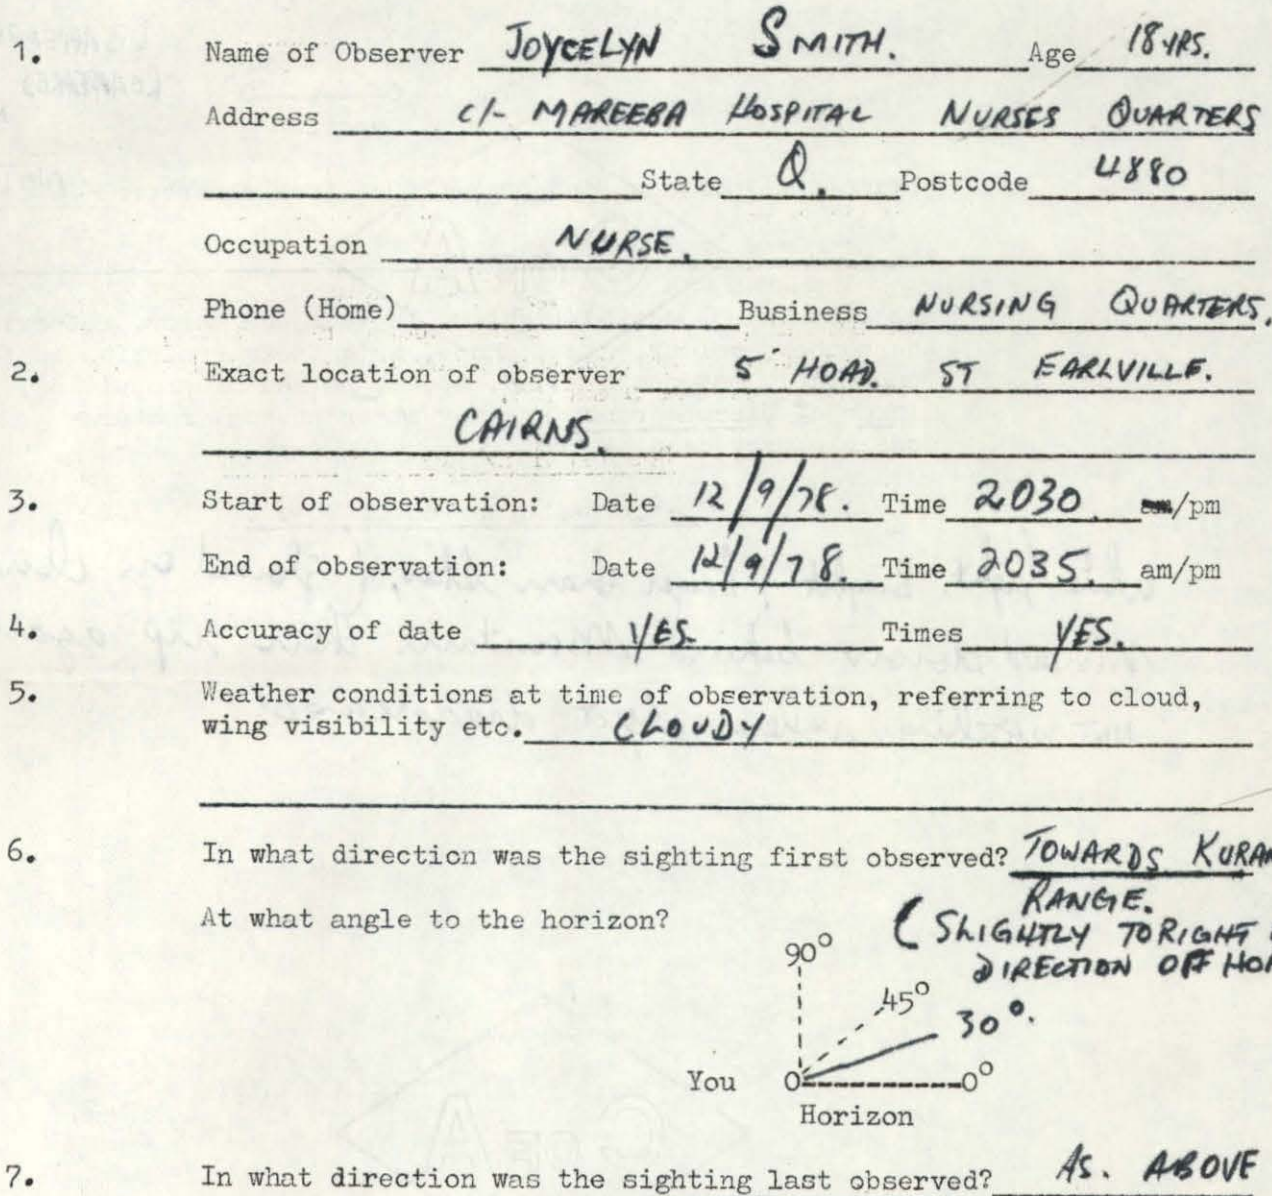 1. Name of Observer JOYCELYN SMITH. Age 18 YRS.
Address C/- MAREEBA HOSPITAL NURSES QUARTERS
State Q. Postcode 4880
Occupation NURSE.
Phone (Home) Business NURSING QUARTERS.
2. Exact location of observer 5 HOAD. ST EARLVILLE.
CAIRNS.
3. Start of observation: Date 12/9/78. Time 2030. am/pm
End of observation: Date 12/9/78. Time 2035. am/pm
4. Accuracy of date YES. Times YES.
5. Weather conditions at time of observation, referring to cloud,
wing visibility etc. CLOUDY
6. In what direction was the sighting first observed? TOWARDS KURAN
RANGE.
At what angle to the horizon?
( SLIGHTLY TO RIGHT
DIRECTION OFF HO
90°
45°
30°.
You 0 0°
Horizon
7. In what direction was the sighting last observed? AS. ABOVE